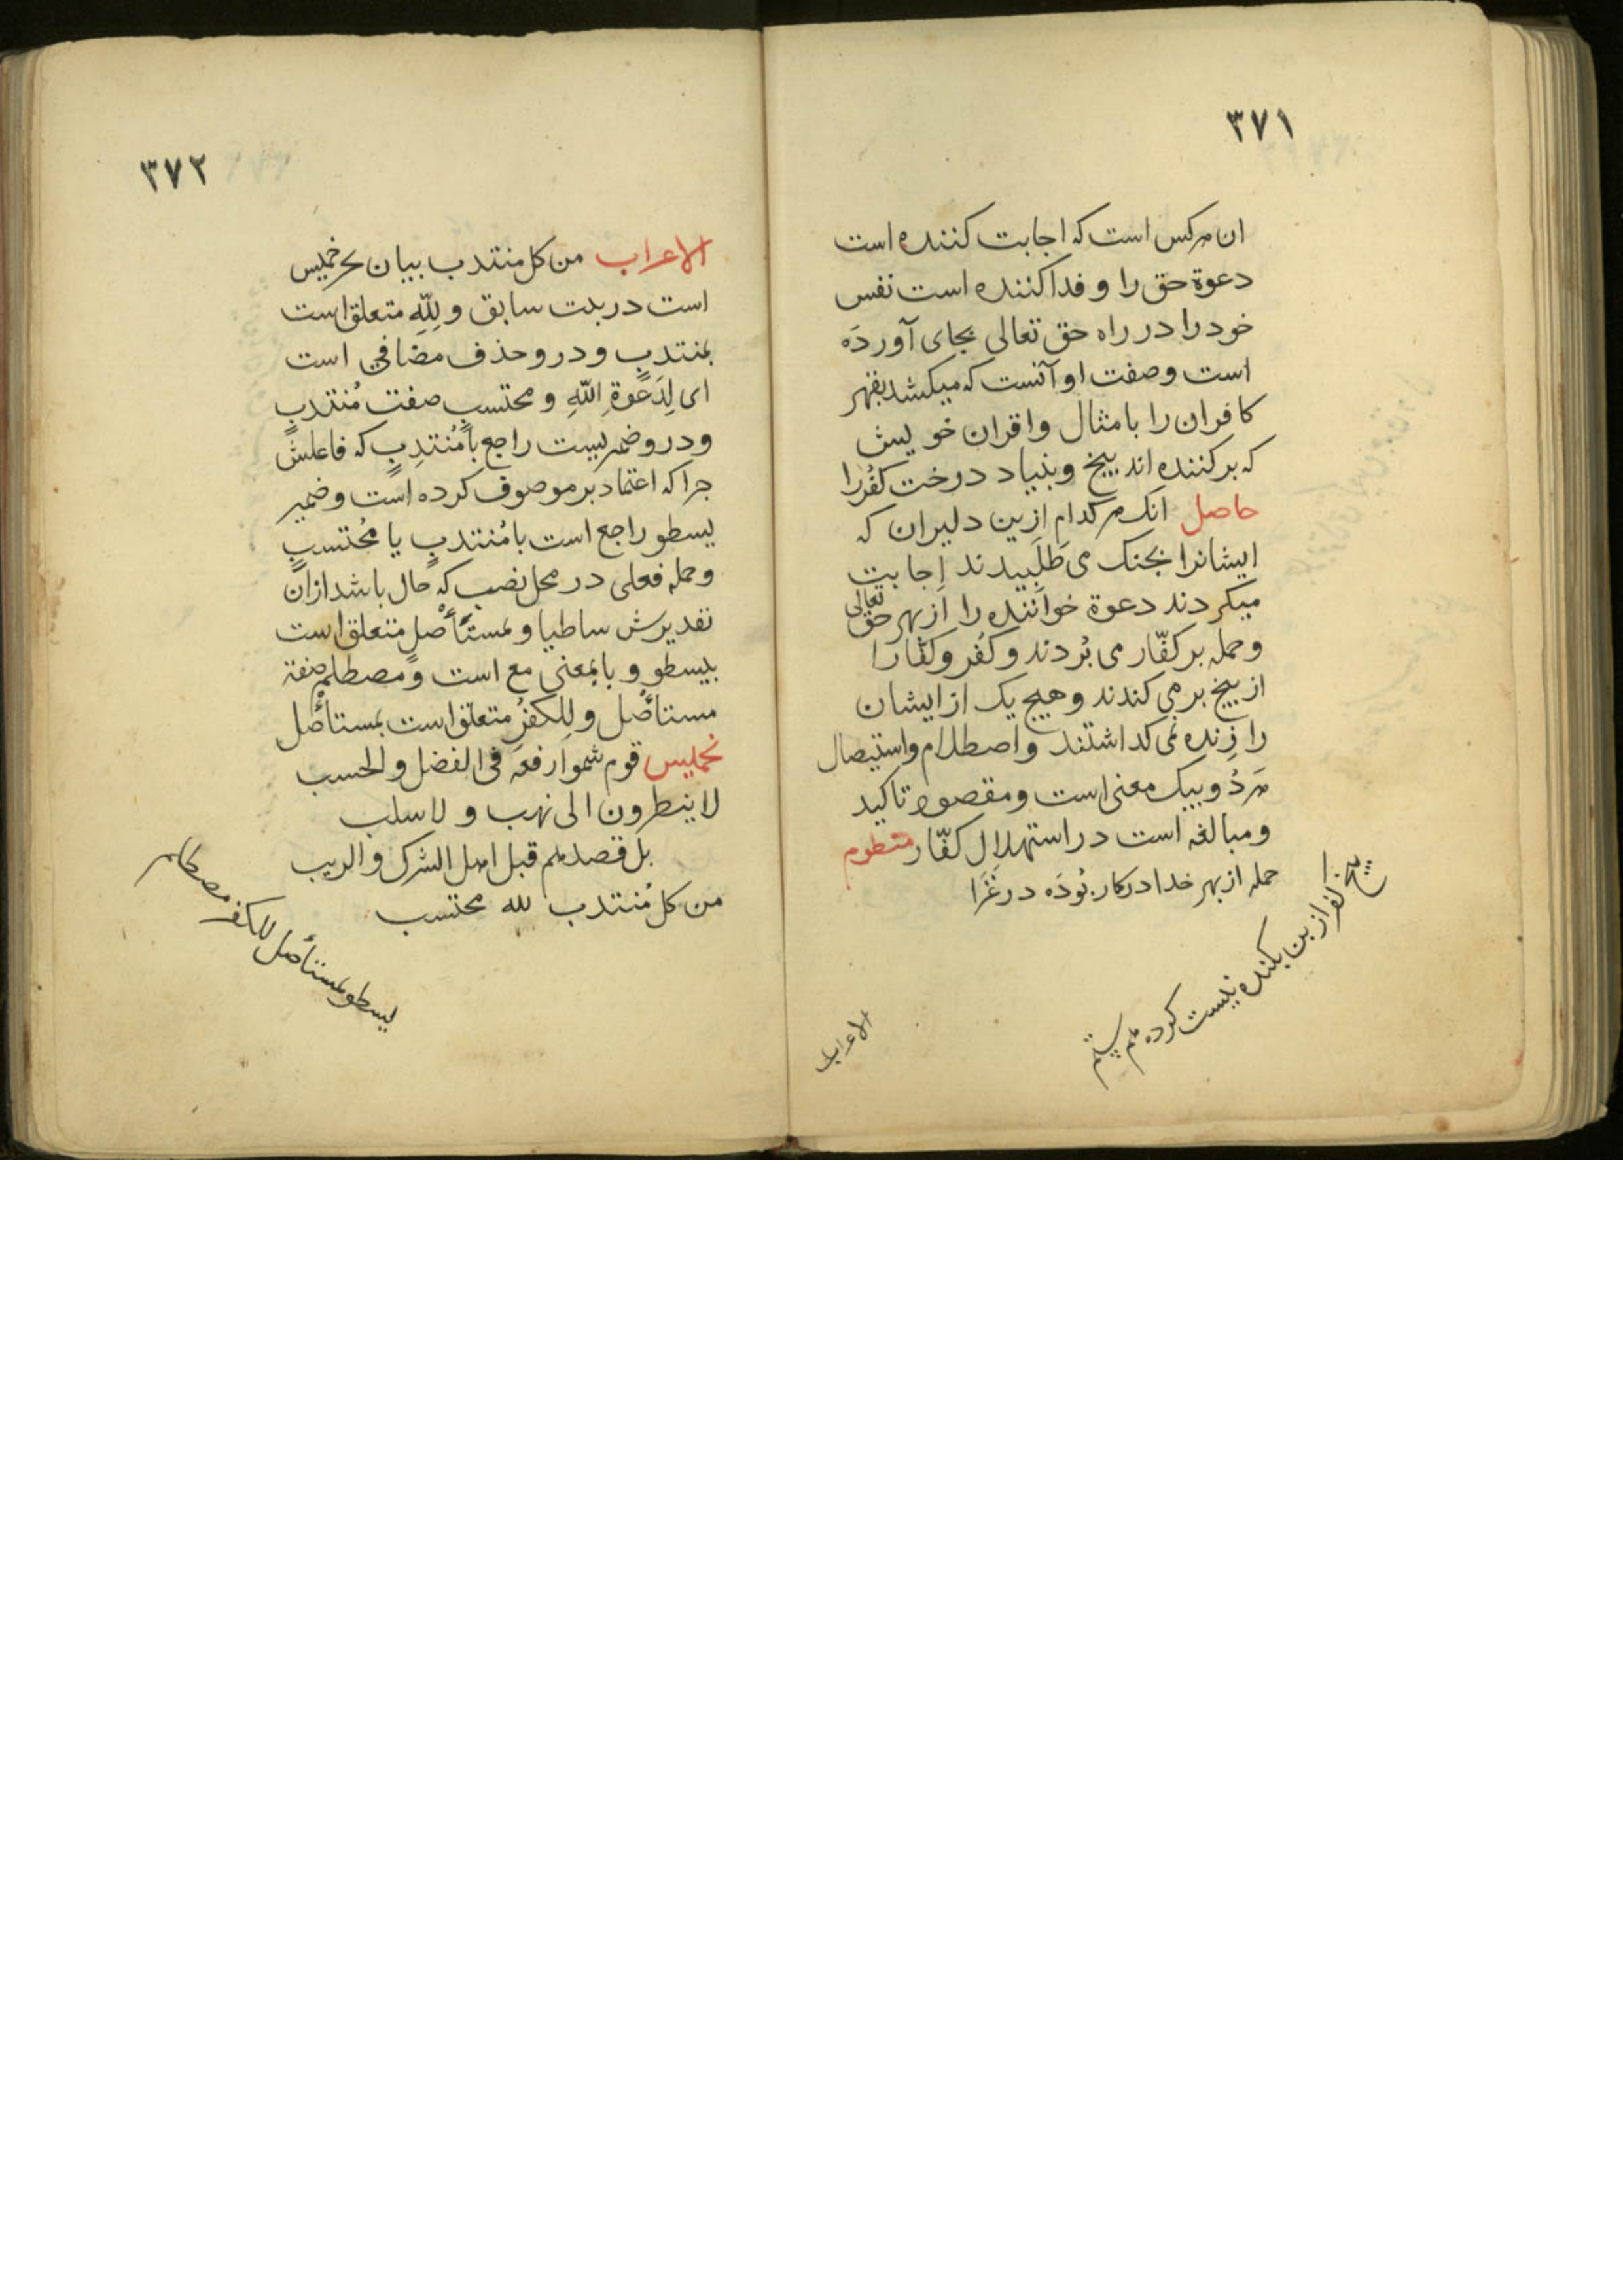 ٣٧١
ان هرکس است که اجابت کننده است
دعوة حق را و فدا کننده است نفس
خود را در راه حق تعالی بجای آوردَه
است وصفت او آنست که میکشد بقهر
کافران را با مثال واقران خویش
که برکننده اند بیخ وبنیاد درخت کفُررا
حاصل انک هرکدام ازین دلیران که
ایشانرا بجنک می طلَبیدند اِجابت
میکردند دعوة خوانَنده را از بهر حق تعالی
وحمله بر کفّار می بُردند و کُفر و کفّار را
از بیخ برمی کندند و هیچ یک از ایشان
را زِنده نمی کداشتند واصطلام واستیصال
هَردُو بیک معنی است و مقصود تاکید
ومبالغه است در استهلاِل کفّار منظوم
حمله از بهر خدا درکار بُودَه در غَزَا
بیخ کفر از بن بکنده نیست کرده هم ستم
الاعراب
٣٧٢
الاعراب من کل منتدب بیان بحر خمیس
است در بیت سابق و لِلّٰهِ متعلق است
بمنتدبٍ ودرو حذف مضافی است
ای لِدَعْوةِ اللّٰهِ و محتسبٍ صفت مُنتدبٍ
ودرو ضمیریست راجع بامُنتدِبٍ که فاعلش
جرا که اعتماد بر موصوف کرده است وضمیر
یسطو راجع است با مُنتدبٍ یا مُحتسبٍ
وجمله فعلی در محل نصب که حال باشد ازان
تقدیرش ساطیا و بمستَأْصلٍ متعلق است
بیسطو و با بمعنی مع است ومصطلم صفة
مستأصل و لِلکفرِ متعلق است بمستأصل
تخمیس قوم سموا رفعه فی الفضل والحسب
لا ینظرون الی نهب و لا سلب
بل قصدهم قبل اهل الشرک والریب
من کل مُنتدب لله محتسب
یسطو بمستأصل للکفر مصطلم